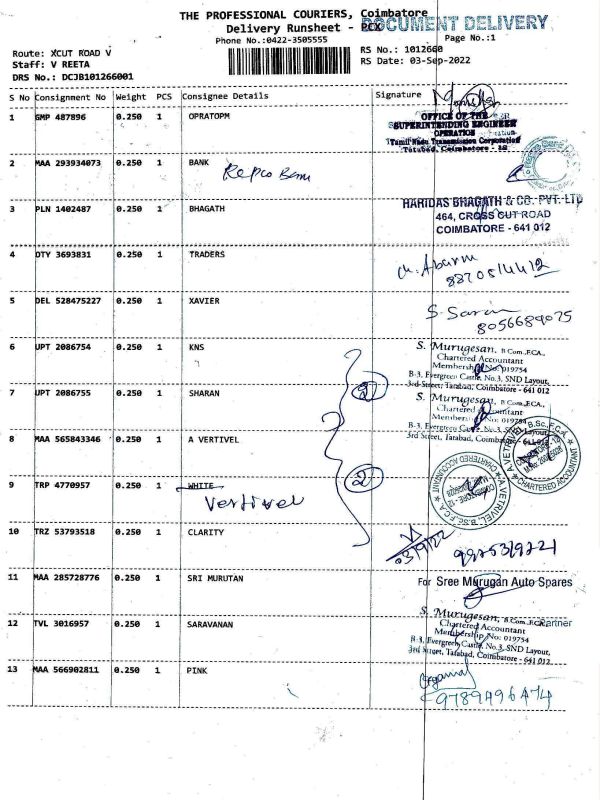 THE PROFESSIONAL COURIERS, Coimbatore
Delivery Runsheet - PCX
DOCUMENT DELIVERY
Phone No.:0422-3505555
Page No.:1
Route: XCUT ROAD V
RS No.: 1012660
Staff: V REETA
RS Date: 03-Sep-2022
DRS No.: DCJB101266001
S No Consignment No Weight PCS Consignee Details Signature
1 GMP 487896 0.250 1 OPRATOPM
OFFICE OF THE
SUPERINTENDING ENGINEER
OPERATION
Tamil Nadu Transmission Corporation
Tatabad, Coimbatore - 12
2 MAA 293934073 0.250 1 BANK
Repco Bank
3 PLN 1402487 0.250 1 BHAGATH
HARIDAS BHAGATH & CO. PVT. LTD
464, CROSS CUT ROAD
COIMBATORE - 641 012
4 DTY 3693831 0.250 1 TRADERS
5 DEL 528475227 0.250 1 XAVIER
8056689075
6 UPT 2086754 0.250 1 KNS
S. Murugesan, B.Com.,F.CA.,
Chartered Accountant
Membership No: 019754
B-3, Evergreen Castle, No.3, SND Layout,
3rd Street, Tatabad, Coimbatore - 641 012
7 UPT 2086755 0.250 1 SHARAN
S. Murugesan, B.Com.,F.CA.,
Chartered Accountant
B-3, Evergreen Castle, No.3, SND Layout,
3rd Street, Tatabad, Coimbatore - 641 012
8 MAA 565843346 0.250 1 A VERTIVEL
A.VETRIVEL, B.Sc.,F.C.A.
CHARTERED ACCOUNTANT
9 TRP 4770957 0.250 1 WHITE
Vertivel
2
A.VETRIVEL, B.Sc.,F.C.A.
CHARTERED ACCOUNTANT
10 TRZ 53793518 0.250 1 CLARITY
11 MAA 285728776 0.250 1 SRI MURUTAN
For Sree Murugan Auto Spares
Partner
12 TVL 3016957 0.250 1 SARAVANAN
S. Murugesan, B.Com.,F.CA.,
Chartered Accountant
Membership No: 019754
B-3, Evergreen Castle, No.3, SND Layout,
3rd Street, Tatabad, Coimbatore - 641 012
13 MAA 566902811 0.250 1 PINK
9789496474